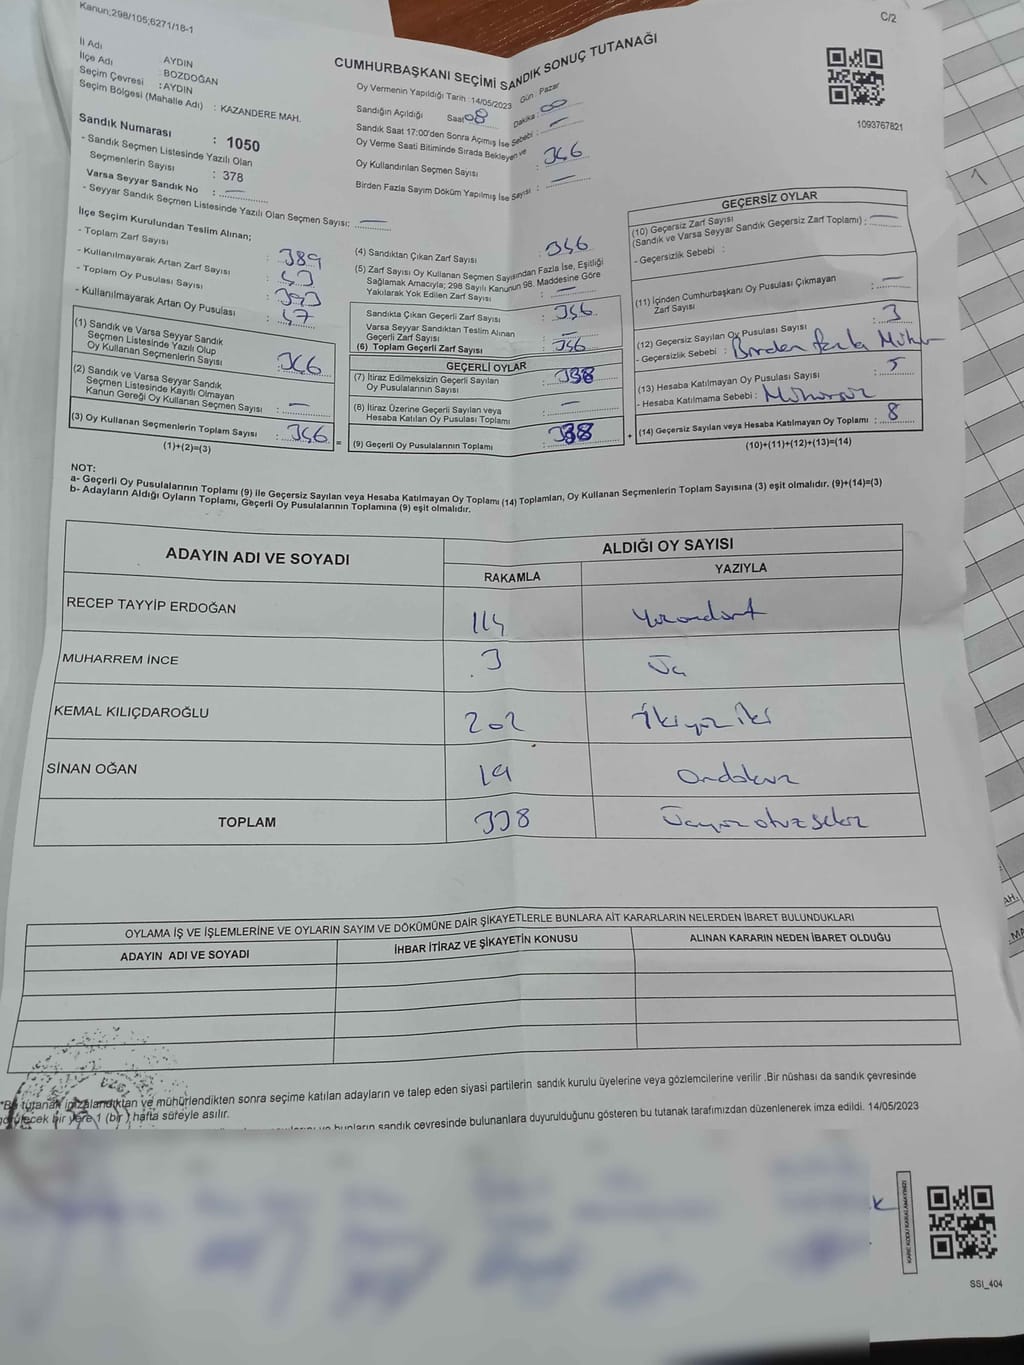 Kanun;298/105;6271/18-1
C/2
CUMHURBAŞKANI SEÇİMİ SANDIK SONUÇ TUTANAĞI
İl Adı AYDIN
İlçe Adı : BOZDOĞAN
Seçim Çevresi : AYDIN
Seçim Bölgesi (Mahalle Adı) : KAZANDERE MAH.
Oy Vermenin Yapıldığı Tarih :14/05/2023 Gün : Pazar
Sandığın Açıldığı Saat 08 Dakika : 00
Sandık Saat 17:00'den Sonra Açmış İse Sebebi : —
Oy Verme Saati Bitiminde Sırada Bekleyen ve
Oy Kullandırılan Seçmen Sayısı : 346
Birden Fazla Sayım Döküm Yapılmış İse Sayısı : —
1093767821
Sandık Numarası : 1050
- Sandık Seçmen Listesinde Yazılı Olan
Seçmenlerin Sayısı : 378
Varsa Seyyar Sandık No : —
- Seyyar Sandık Seçmen Listesinde Yazılı Olan Seçmen Sayısı: —
İlçe Seçim Kurulundan Teslim Alınan;
- Toplam Zarf Sayısı : 389
- Kullanılmayarak Artan Zarf Sayısı : 43
- Toplam Oy Pusulası Sayısı : 393
- Kullanılmayarak Artan Oy Pusulası : 47
(1) Sandık ve Varsa Seyyar Sandık
Seçmen Listesinde Yazılı Olup
Oy Kullanan Seçmenlerin Sayısı : 346
(2) Sandık ve Varsa Seyyar Sandık
Seçmen Listesinde Kayıtlı Olmayan
Kanun Gereği Oy Kullanan Seçmen Sayısı : —
(3) Oy Kullanan Seçmenlerin Toplam Sayısı : 346
(1)+(2)=(3)
(4) Sandıktan Çıkan Zarf Sayısı : 346
(5) Zarf Sayısı Oy Kullanan Seçmen Sayısından Fazla İse, Eşitliği
Sağlamak Amacıyla; 298 Sayılı Kanunun 98. Maddesine Göre
Yakılarak Yok Edilen Zarf Sayısı : —
Sandıkta Çıkan Geçerli Zarf Sayısı : 346
Varsa Seyyar Sandıktan Teslim Alınan
Geçerli Zarf Sayısı : —
(6) Toplam Geçerli Zarf Sayısı : 346
GEÇERLİ OYLAR
(7) İtiraz Edilmeksizin Geçerli Sayılan
Oy Pusulasının Sayısı : 338
(8) İtiraz Üzerine Geçerli Sayılan veya
Hesaba Katılan Oy Pusulası Toplamı : —
= (9) Geçerli Oy Pusulalarının Toplamı : 338
GEÇERSİZ OYLAR
(10) Geçersiz Zarf Sayısı
(Sandık ve Varsa Seyyar Sandık Geçersiz Zarf Toplamı) : —
- Geçersizlik Sebebi :
(11) İçinden Cumhurbaşkanı Oy Pusulası Çıkmayan
Zarf Sayısı : —
(12) Geçersiz Sayılan Oy Pusulası Sayısı : 3
- Geçersizlik Sebebi : Birden fazla Mühür
(13) Hesaba Katılmayan Oy Pusulası Sayısı : 5
- Hesaba Katılmama Sebebi : Mühürsüz
+ (14) Geçersiz Sayılan veya Hesaba Katılmayan Oy Toplamı : 8
(10)+(11)+(12)+(13)=(14)
NOT:
a- Geçerli Oy Pusulalarının Toplamı (9) ile Geçersiz Sayılan veya Hesaba Katılmayan Oy Toplamı (14) Toplamları, Oy Kullanan Seçmenlerin Toplam Sayısına (3) eşit olmalıdır. (9)+(14)=(3)
b- Adayların Aldığı Oyların Toplamı, Geçerli Oy Pusulalarının Toplamına (9) eşit olmalıdır.
ADAYIN ADI VE SOYADI ALDIĞI OY SAYISI
RAKAMLA YAZIYLA
RECEP TAYYİP ERDOĞAN 114 Yüzondört
MUHARREM İNCE 3 Üç
KEMAL KILIÇDAROĞLU 202 İkiyüziki
SİNAN OĞAN 19 Ondokuz
TOPLAM 338 Üçyüzotuzsekiz
OYLAMA İŞ VE İŞLEMLERİNE VE OYLARIN SAYIM VE DÖKÜMÜNE DAİR ŞİKAYETLERLE BUNLARA AİT KARARLARIN NELERDEN İBARET BULUNDUKLARI
ADAYIN ADI VE SOYADI İHBAR İTİRAZ VE ŞİKAYETİN KONUSU ALINAN KARARIN NEDEN İBARET OLDUĞU
*Bu tutanak imzalandıktan ve mühürlendikten sonra seçime katılan adayların ve talep eden siyasi partilerin sandık kurulu üyelerine veya gözlemcilerine verilir .Bir nüshası da sandık çevresinde
görülecek bir yere 1 (bir) hafta süreyle asılır.
bunların sandık çevresinde bulunanlara duyurulduğunu gösteren bu tutanak tarafımızdan düzenlenerek imza edildi. 14/05/2023
KARE KODU KARALAMAYINIZ!
SSI_404